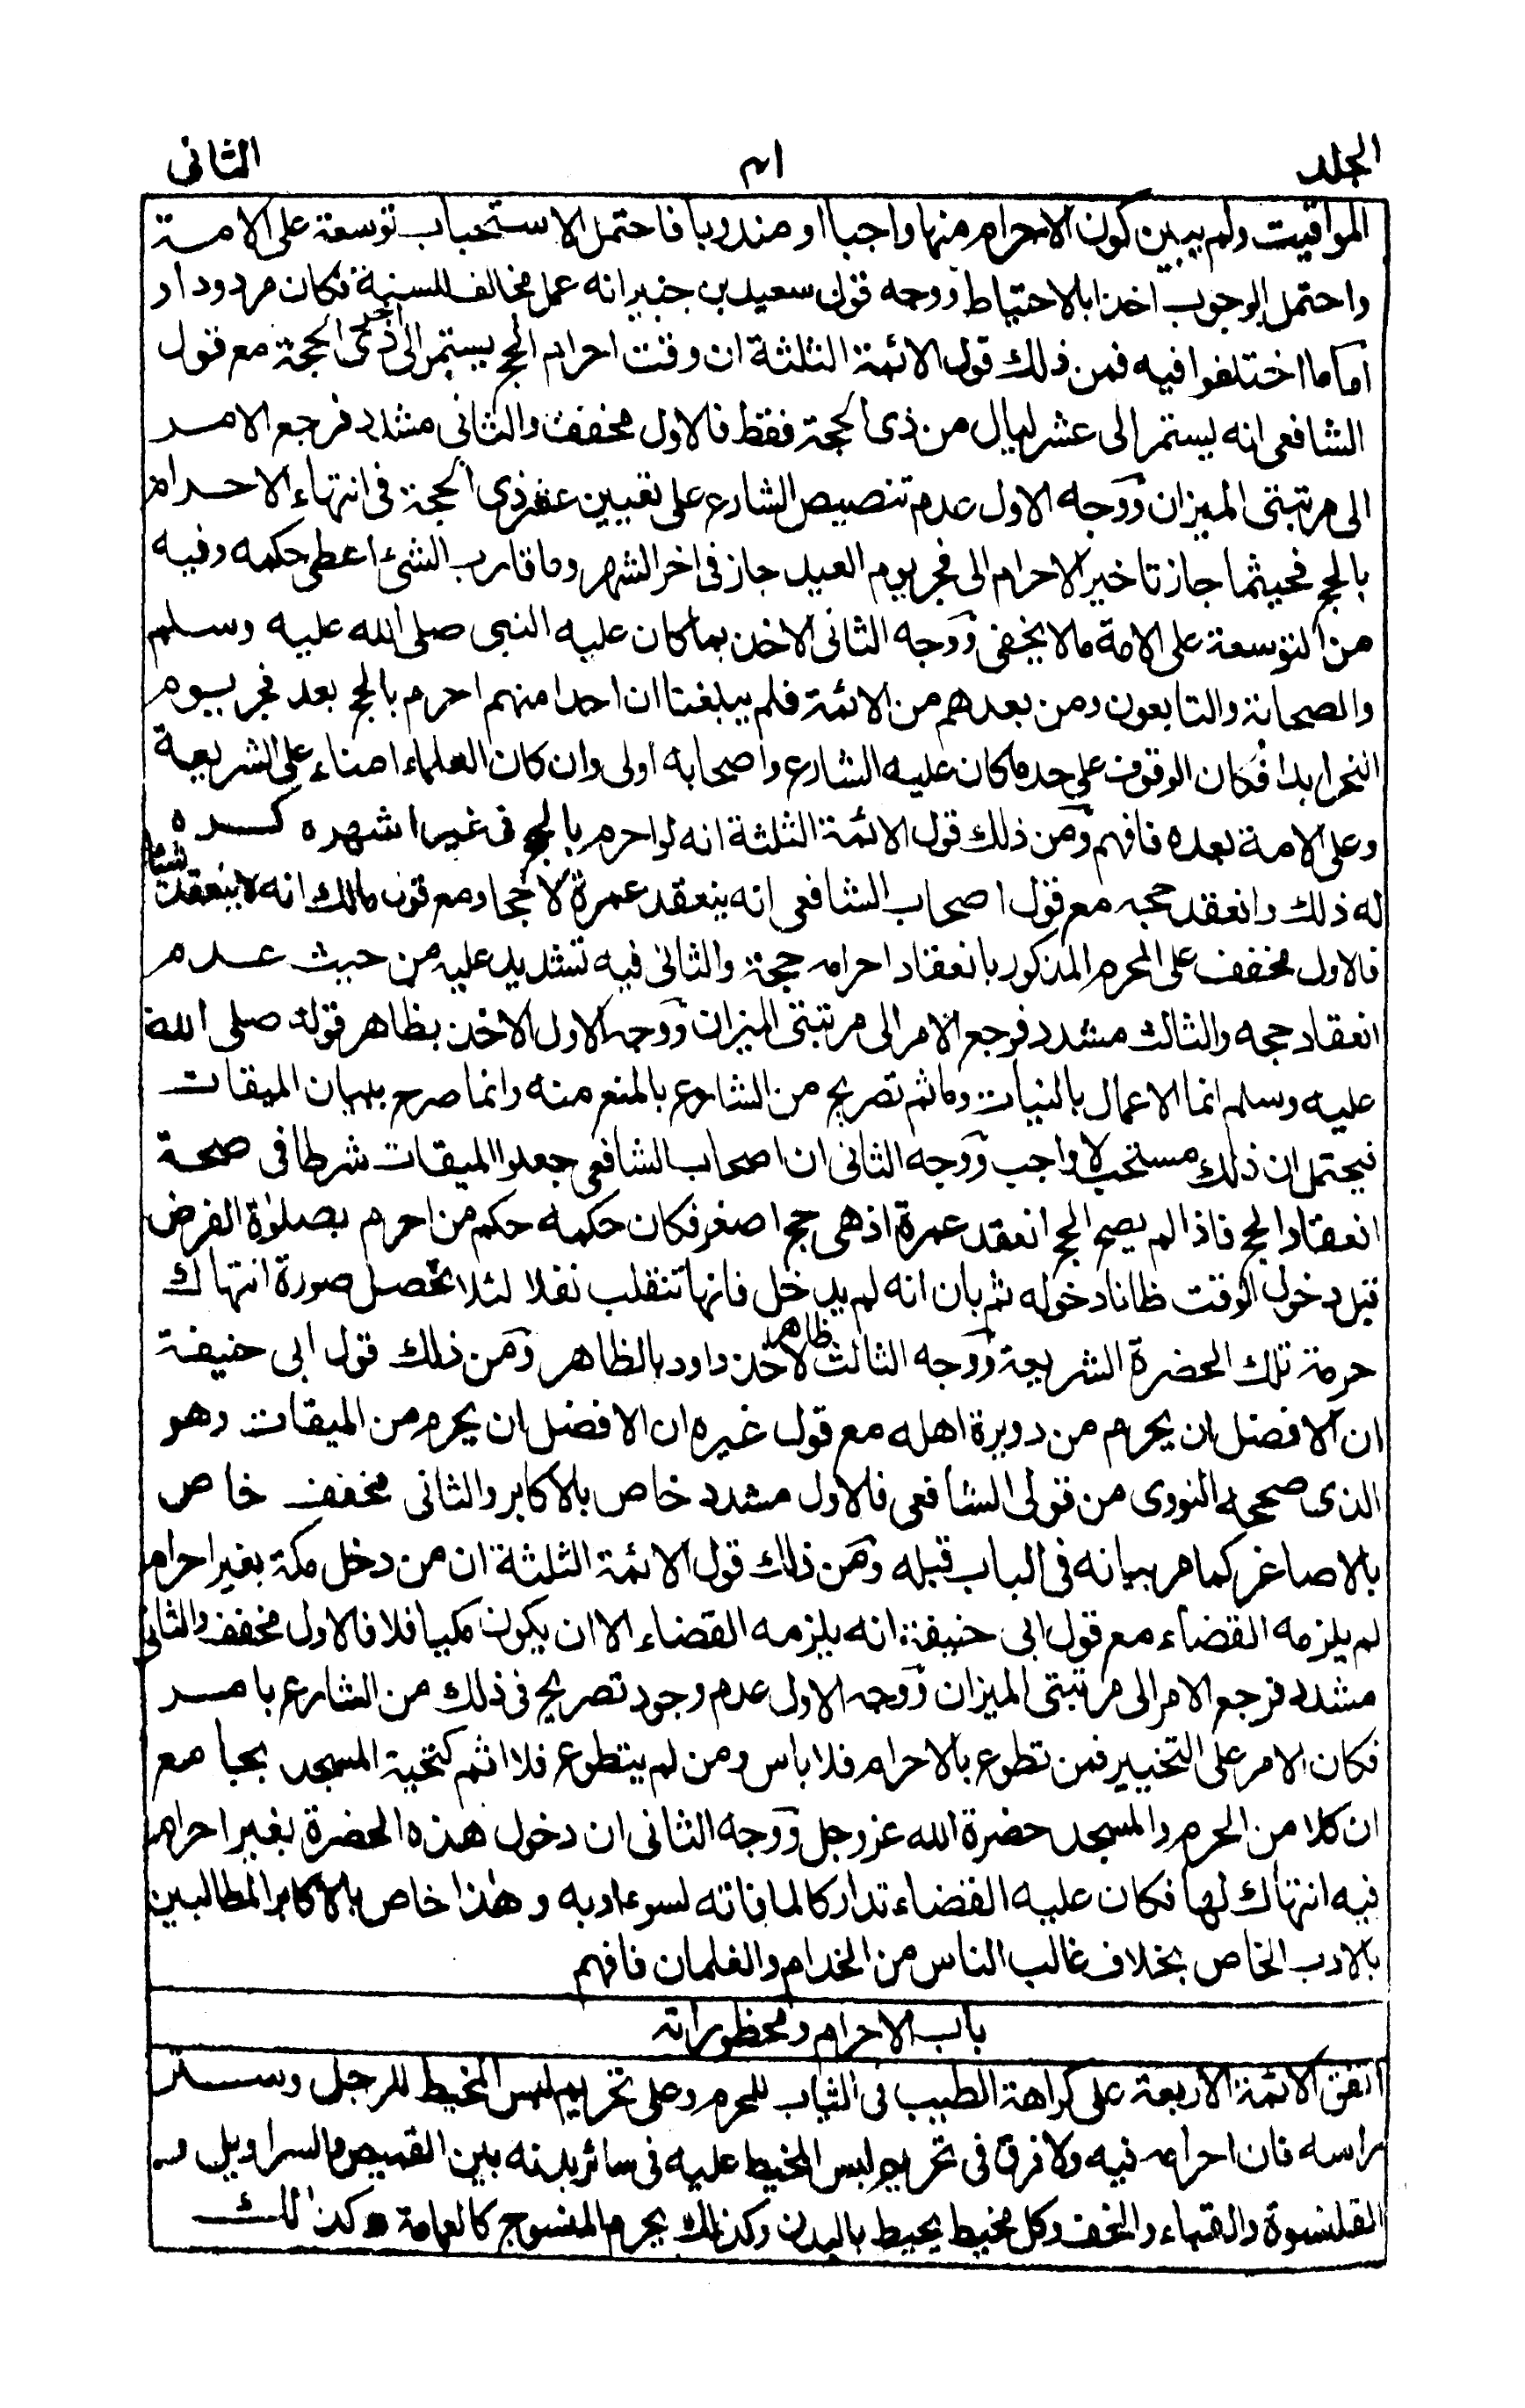 الجلد ۴۱ الثانى
المواقيت ولم يبين كون الاحرام منها واجبا او مندوبا فاحتمل الاستحباب توسعة على الامة
واحتمل الوجوب اخذا بالاحتياط ووجه قول سعيد بن جبير انه عمل مخالف للسنة فكان مردودا و
اما ما اختلفوا فيه فمن ذلك قول الائمة الثلثة ان وقت احرام الحج يستمر الى اخر ذى الحجة مع قول
الشافعى انه يستمر الى عشر ليال من ذى الحجة فقط فالاول مخفف والثانى مشدد فرجع الامر
الى مرتبتى الميزان ووجه الاول عدم تنصيص الشارع على تعيين عشر ذى الحجة فى انتهاء الاحرام
بالحج فحيثما جاز تاخير الاحرام الى فجر يوم العيد جاز فى اخر الشهر وما قارب الشئ اعطى حكمه وفيه
من التوسعة على الامة مالا يخفى ووجه الثانى الاخذ بما كان عليه النبى صلى الله عليه وسلم
والصحابة والتابعون ومن بعدهم من الائمة فلم يبلغنا ان احدا منهم احرم بالحج بعد فجر يوم
النحر ابدا فكان الوقوف على حد ما كان عليه الشارع واصحابه اولى وان كان العلماء امناء على الشريعة
وعلى الامة بعده فافهم ومن ذلك قول الائمة الثلثة انه لو احرم بالحج فى غير اشهره كره
له ذلك وانعقد حجه مع قول اصحاب الشافعى انه ينعقد عمرة لا حجا ومع قول مالك انه لا ينعقد شيئا
فالاول مخفف على المحرم المذكور بانعقاد احرامه حجة والثانى فيه تشديد عليه من حيث عدم
انعقاد حجه والثالث مشدد فرجع الامر الى مرتبتى الميزان ووجه الاول الاخذ بظاهر قوله صلى الله
عليه وسلم انما الاعمال بالنيات وما ثم تصريح من الشارع بالمنع منه وانما صرح ببيان الميقات
فيحتمل ان ذلك مستحب لا واجب ووجه الثانى ان اصحاب الشافعى جعلوا الميقات شرطا فى صحة
انعقاد الحج فاذا لم يصح الحج انعقد عمرة اذ هى حج اصغر فكان حكمه حكم من احرم بصلوة الفرض
قبل دخول الوقت ظانا دخوله ثم بان انه لم يدخل فانها تنقلب نفلا لئلا تحصل صورة انتهاك
حرمة تلك الحضرة الشريعة ووجه الثالث ظاهر لاخذ داود بالظاهر ومن ذلك قول ابى حنيفة
ان الافضل ان يحرم من دويرة اهله مع قول غيره ان الافضل ان يحرم من الميقات وهو
الذى صححه النووى من قولى الشافعى فالاول مشدد خاص بالاكابر والثانى مخفف خاص
بالاصاغر كما مر بيانه فى الباب قبله ومن ذلك قول الائمة الثلثة ان من دخل مكة بغير احرام
لم يلزمه القضاء مع قول ابى حنيفة انه يلزمه القضاء الا ان يكون مكيا فلا فالاول مخفف والثانى
مشدد فرجع الامر الى مرتبتى الميزان ووجه الاول عدم وجود تصريح فى ذلك من الشارع بامر
فكان الامر على التخيير فمن تطوع بالاحرام فلا باس ومن لم يتطوع فلا اثم كتحية المسجد بجامع
ان كلا من الحرم والمسجد حضرة الله عز وجل ووجه الثانى ان دخول هذه الحضرة بغير احرام
فيه انتهاك لها فكان عليه القضاء تداركا لما فاته لسوء ادبه وهذا خاص بالاكابر المطالبين
بالادب الخاص بخلاف غالب الناس من الخدام والغلمان فافهم
باب الاحرام ومحظوراته
اتفق الائمة الاربعة على كراهة الطيب فى الثياب للمحرم وعلى تحريم لبس المخيط للرجل وستر
راسه فان احرامه فيه ولا فرق فى تحريم لبس المخيط عليه فى سائر بدنه بين القميص والسراويل و
القلنسوة والقباء والخف وكل مخيط يحيط بالبدن وكذلك يحرم المنسوج كالعمامة وكذلك